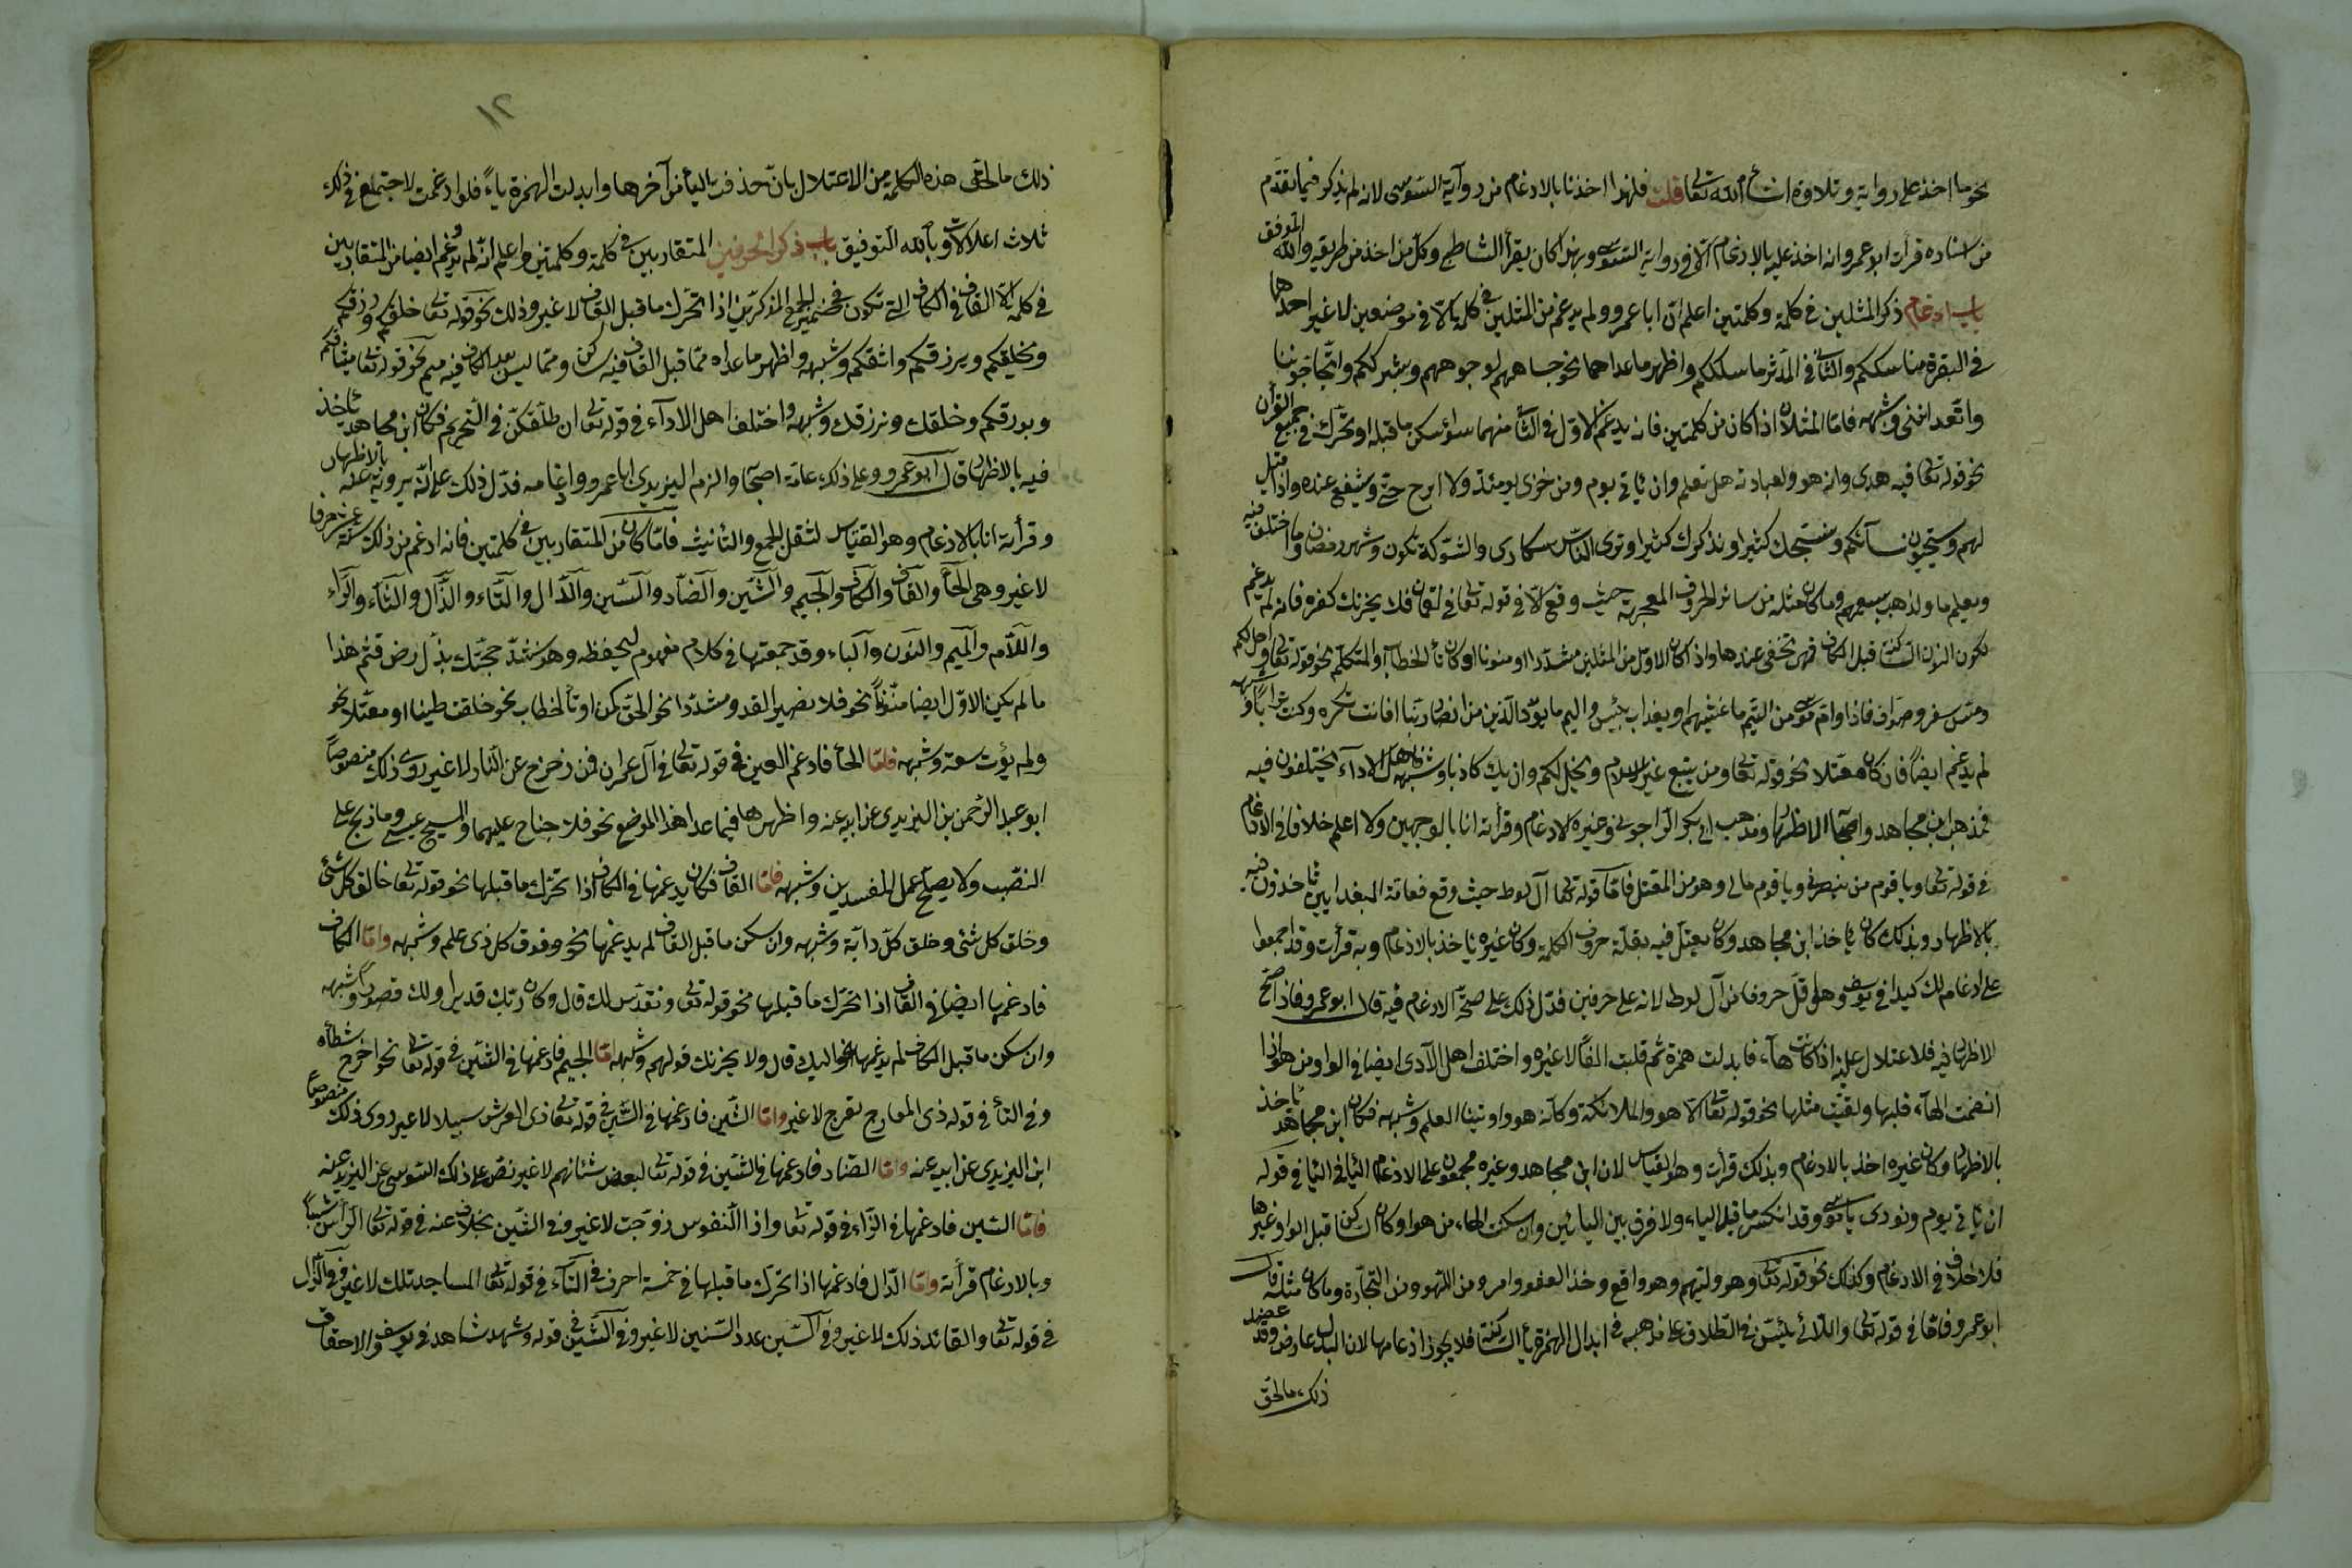 نحو ما اخذ على رواية وتلاوة ان شاء الله تعالى قلت فلهذا اخذنا بالادغام من رواية السوسى لانه لم يذكر فيما تقدم
من اسناده قرأت ابو عمرو انه اخذ عليه بالادغام الا فى رواية السوسى وبهذا كان يقرأ الشاطبى وكل من اخذ من طريقه والله الموفق
باب ادغام ذكر المثلين فى كلمة وكلمتين اعلم ان ابا عمرو لم يدغم من المثلين فى كلمة الا فى موضعين لا غير احدها
فى البقرة مناسككم والثانى فى المدثر ما سلككم واظهر ما عداهما نحو جباههم لوجوههم وبشرككم واتحاجوننا
واتعداننى وشبهه فاما المثلان اذا كان من كلمتين فانه يدغم الاول فى الثانى منهما سواء سكن ما قبله او تحرك فى جميع القرأن
نحو قوله تعالى فيه هدى وانه هو ولعبادته هل تعلم وان ياتى يوم ومن خزى يومئذ ولا ابرح حتى ويشفع عنده واذا قيل
لهم ويستحيون نسآئكم ونسبحك كثيرا ونذكرك كثيرا وترى الناس سكارى والشوكة تكون وشهر رمضان وما اختلف فيه
ويعلم ما ولذهب بسمعهم وما كان مثله من سائر الحروف المعجمة حيث وقع الا فى قوله تعالى فى لقمان فلا يحزنك كفره فانه لم يدغم
لكون النون الساكنة قبل الكاف فهى تخفى عندها واذا كان الاول من المثلين مشددا او منونا او كان تاء الخطاب او المتكلم نحو قوله تعالى واحل لكم
ومس سقر وصواف فاذا وام موسى من اليم ما غشيهم وبعذاب بئيس واليم ما يود الذين من انصار ربنا افانت تكره وكنت ترابا وشبهه
لم يدغم ايضا فان كان معتلا نحو قوله تعالى ومن يبتغ غير الاسلام ويخل لكم وان يك كاذبا وشبهه فاهل الاداء يختلفون فيه
فمذهب ابن مجاهد واصحابه الاظهار ومذهب ابى بكر الداجونى وغيره الادغام وقرأته انا بالوجهين ولا اعلم خلافا فى الادغام
فى قوله تعالى ويا قوم من ينصرنى ويا قوم مالى وهو من المعتل فاما قوله تعالى آل لوط حيث وقع فعامة البغداديين ياخذون فيه
بالاظهار وبذلك كان ياخذ ابن مجاهد وكان يعتل فيه بقلة حروف الكلمة وكان غيره ياخذ بالادغام وبه قرأت وقد اجمعوا
على ادغام لك كيدا فى يوسف وهو اقل حروفا من آل لوط لانه على حرفين فدل ذلك على صحة الادغام فيه قال ابو عمرو فاذا صح
الاظهار فيه فلاعتلال عليه اذ كانت هآء فابدلت همزة ثم قلبت الفا لا غيره واختلف اهل الآدى ايضا فى الواو من هو اذا
انضمت الهآء قبلها ولقيت مثلها نحو قوله تعالى الا هو والملائكة وكانه هو واوتينا العلم وشبهه فكان ابن مجاهد ياخذ
بالاظهار وكان غيره اخذ بالادغام وبذلك قرأت وهو القياس لان ابن مجاهد وغيره مجمعون على الادغام اليا فى اليا فى قوله
ان ياتى يوم ونودى يا موسى وقد انكسر ما قبل الياء ولا فرق بين اليائين وان سكنت الهاء من هو او كان الساكن قبل الواو غيرها
فلا خلاف فى الادغام وكذلك نحو قوله تعالى وهو وليهم وهو واقع وخذ العفو وامر ومن اللهو ومن التجارة وما كان مثله قال
ابو عمرو فاما قوله تعالى واللائى يئسن فى الطلاق على مذهبه فى ابدال الهمزة يآء الساكنة فلا يجوز ادغامها لان البدل عارض وقد عضد
ذلك ما لحق
١٢
ذلك ما لحق هذه الكلمة من الاعتلال بان حذفت اليآء من آخرها وابدلت الهمزة ياءً فلو ادغمت لاجتمع فى ذلك
ثلاث اعلالات وبالله التوفيق باب ذكر الحرفين المتقاربين فى كلمة وكلمتين واعلم انه لم يدغم ايضا من المتقاربين
فى كلمة الا القاف فى الكاف التى تكون فى ضمير الجمع المذكرين اذا تحرك ما قبل القاف لا غير وذلك نحو قوله تعالى خلقكم ورزقكم
ويخلقكم ويرزقكم واثقكم وشبهه واظهر ما عداه مما قبل القاف فيه ساكن ومما ليس بعد الكاف فيه ميم نحو قوله تعالى ميثاقكم
وبورقكم وخلقك ونرزقك وشبهه واختلف اهل الادآء فى قوله تعالى ان طلقكن فى التحريم فكان ابن مجاهد ياخذ
فيه بالاظهار قال ابو عمرو وعلى ذلك عامة اصحابه والزم اليزيدى ابا عمرو وادغامه فدل ذلك على انه يرويه عنه بالاظهار
وقرأته انا بالادغام وهو القياس لثقل الجمع والتأنيث فاما ما كان من المتقاربين فى كلمتين فانه ادغم من ذلك ستة عشر حرفا
لا غير وهى الحآء والقاف والكاف والجيم والشين والضاد والسين والدال والتاء والذال والثاء والراء
واللام والميم والنون والباء وقد جمعتها فى كلام مفهوم ليحفظ وهو سنشد حجتك بذل رض قثم هذا
ما لم يكن الاول ايضا منونا نحو فلا نصير لقد ومشددا نحو الحق كمن او تاء الخطاب نحو خلقت طينا او معتلا نحو
ولم يؤت سعة وشبهه فاما الحآء فادغم العين فى قوله تعالى فى آل عمران فمن زحزح عن النار لا غير روى ذلك منصوصا
ابو عبد الرحمن بن اليزيدى عن ابيه عنه واظهرها فيما عدا هذا الموضع نحو فلا جناح عليهما والمسيح عيسى وما ذبح على
النصب ولا يصلح عمل المفسدين وشبهه فاما القاف فكان يدغمها فى الكاف اذا تحرك ما قبلها نحو قوله تعالى خالق كل شئ
وخلق كل شئ وخلق كل دابة وشبهه وان سكن ما قبل القاف لم يدغمها نحو وفوق كل ذى علم وشبهه واما الكاف
فادغمها ايضا فى القاف اذا تحرك ما قبلها نحو قوله تعالى ونقدس لك قال وكان ربك قديرا ولك قصورا وشبهه
وان سكن ما قبل الكاف لم يدغمها نحو اليك قال ولا يحزنك قولهم وشبهه اما الجيم فادغمها فى الشين فى قوله تعالى نحو اخرج شطأه
وفى التآء فى قوله ذى المعارج تعرج لا غير واما الشين فادغمها فى السين فى قوله تعالى ذى العرش سبيلا لا غير روى ذلك منصوصا
ابن اليزيدى عن ابيه عنه واما الضاد فادغمها فى الشين فى قوله تعالى لبعض شئانهم لا غير نص على ذلك السوسى عن اليزيدى عنه
فاما السين فادغمها فى الزاء فى قوله تعالى واذا النفوس زوجت لا غير وفى الشين بخلاف عنه فى قوله تعالى الرأس شيبا
وبالادغام قرأته واما الدال فادغمها اذا تحرك ما قبلها فى خمسة احرف فى التآء فى قوله تعالى المساجد تلك لا غير وفى الذال
فى قوله تعالى والقائد ذلك لا غير وفى السين عدد السنين لا غير وفى الشين فى قوله وشهد شاهد فى يوسف والاحقاف